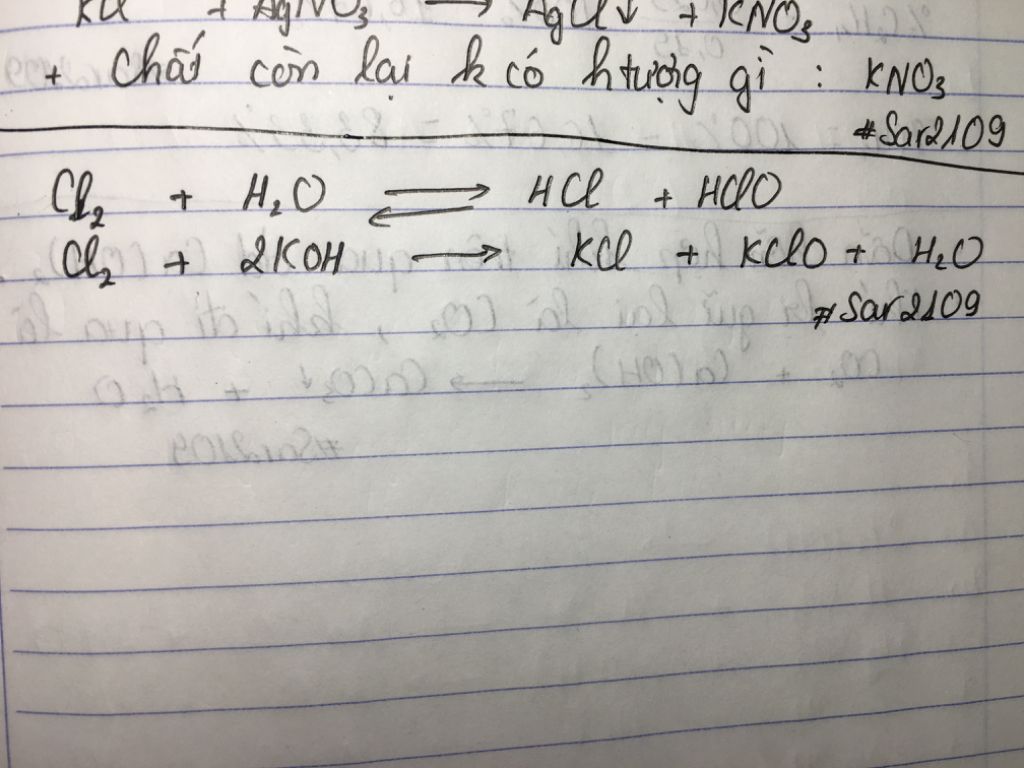 KCl + AgNO3 → AgCl↓ + KNO3
+ Chất còn lại k có htượng gì : KNO3
#Sar2109
Cl2 + H2O ⇌ HCl + HClO
Cl2 + 2KOH → KCl + KClO + H2O
#Sar2109